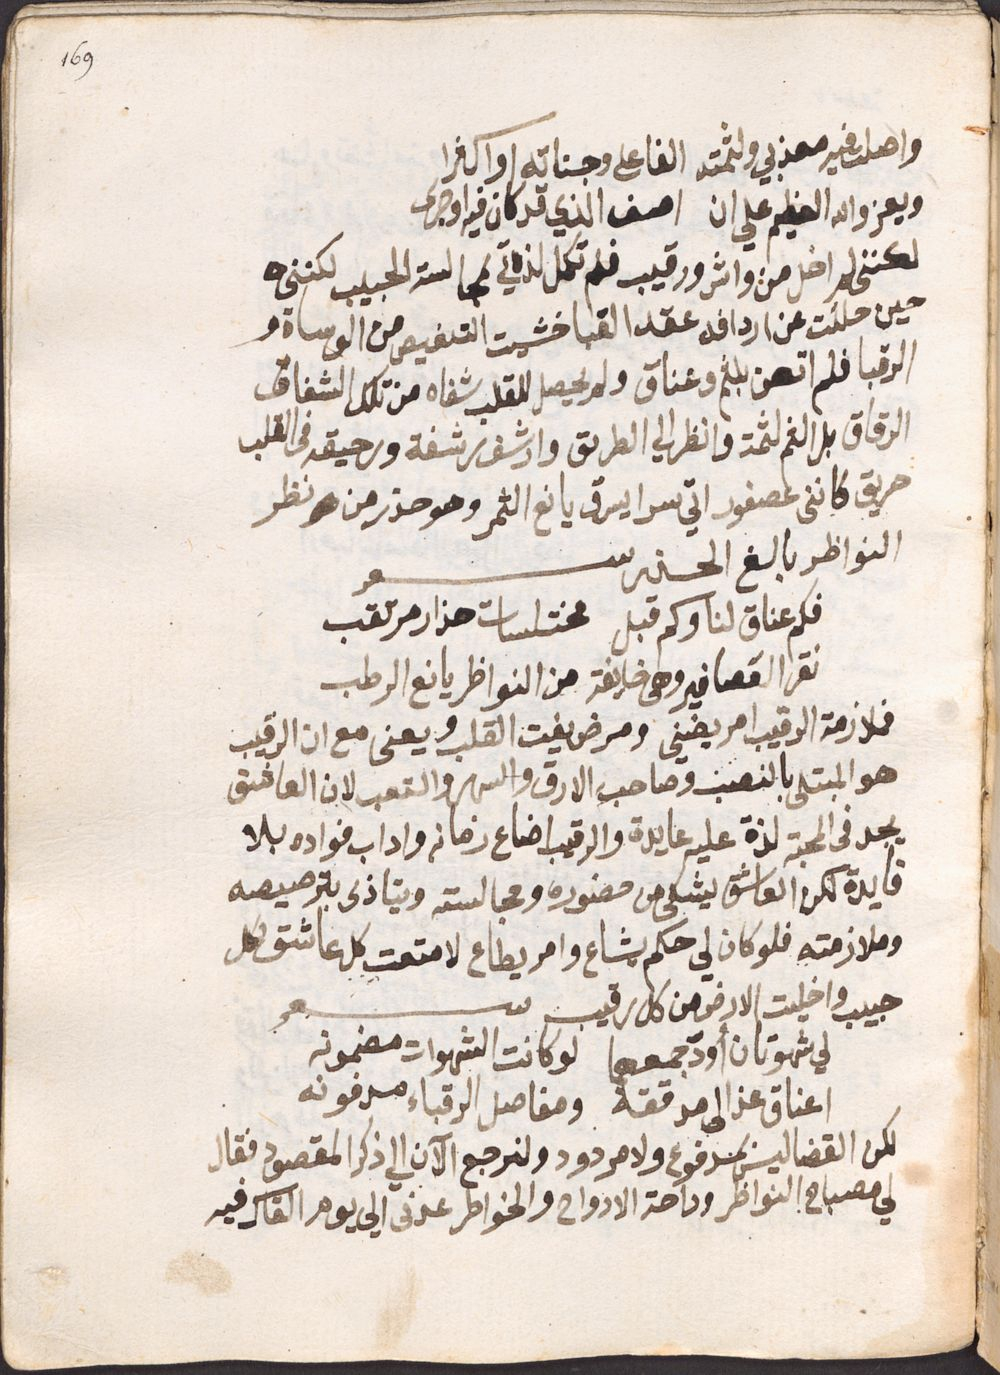 169
واصلت فيه معذبي ولثمته الفا على وجناته او اكثرا
ويعز والله العظيم علي ان اصف الذي قد كان فيه او جرى
لكنني لم اخل من واش ورقيب فلم تكمل لذتي بمجالسته الحبيب لكنني
حين حللت عن اردافه عقد القبا خشيت التنغيص من الوساة و
الرقبا فلم اتهن بلثم وعناق ولم يحصل للقلب شفاه من تلك الشفاق
الرقاق بل الثم لثمة وانظر الي الطريق وارشف رشفة ورحيقه في القلب
حريق كانني عصفور اتي سرا يسرق يانع الثمر وهو حذر من نظر
النواظر بالغ الحذر شعر
فكم عناق لنا وكم قبل مختلسات حذار مرتقب
نقر العصافير وهي خايفة من النواظر يانع الرطب
فملازمة الرقيب امر يضني ومرض يفيت القلب ويعنى مع ان الرقيب
هو المبتلى بالنصب وصاحب الارق والسهر والتعب لان العاشق
يجد في المحبة لذة عليه عايدة والرقيب اضاع زمانه واداب فواده بلا
فايدة لكن العاشق يشكي من حضوره ومجالسته ويتاذى بترصيصه
وملازمته فلو كان لي حكم يشاع وامر يطاع لامتعت كل عاشق بكل
حبيب واخليت الارض من كل رقيب شعر
لي شهوتان أود جمعهما لو كانت الشهوات مضمونه
اعناق عذالي مدققة ومفاصل الرقباء مدفونه
لكن القضا ليس بمدفوع ولا مردود ولنرجع الآن الي ذكر المقصود فقال
لي مصباح النواظر وراحة الارواح والخواطر عدني الي يوم القاك فيه